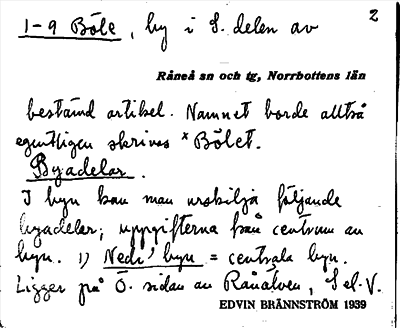 2
1-9 Böle, by i S. delen av
Råneå sn och tg, Norrbottens län
bestämd artikel. Namnet borde alltså
egentligen skrivas *Bölet.
Byadelar.
I byn kan man urskilja följande
byadelar; uppgifterna från centrum av
byn. 1) Nedi' byn = centrala byn.
Ligger på Ö. sidan av Råneälven, S el. V.
EDVIN BRÄNNSTRÖM 1939